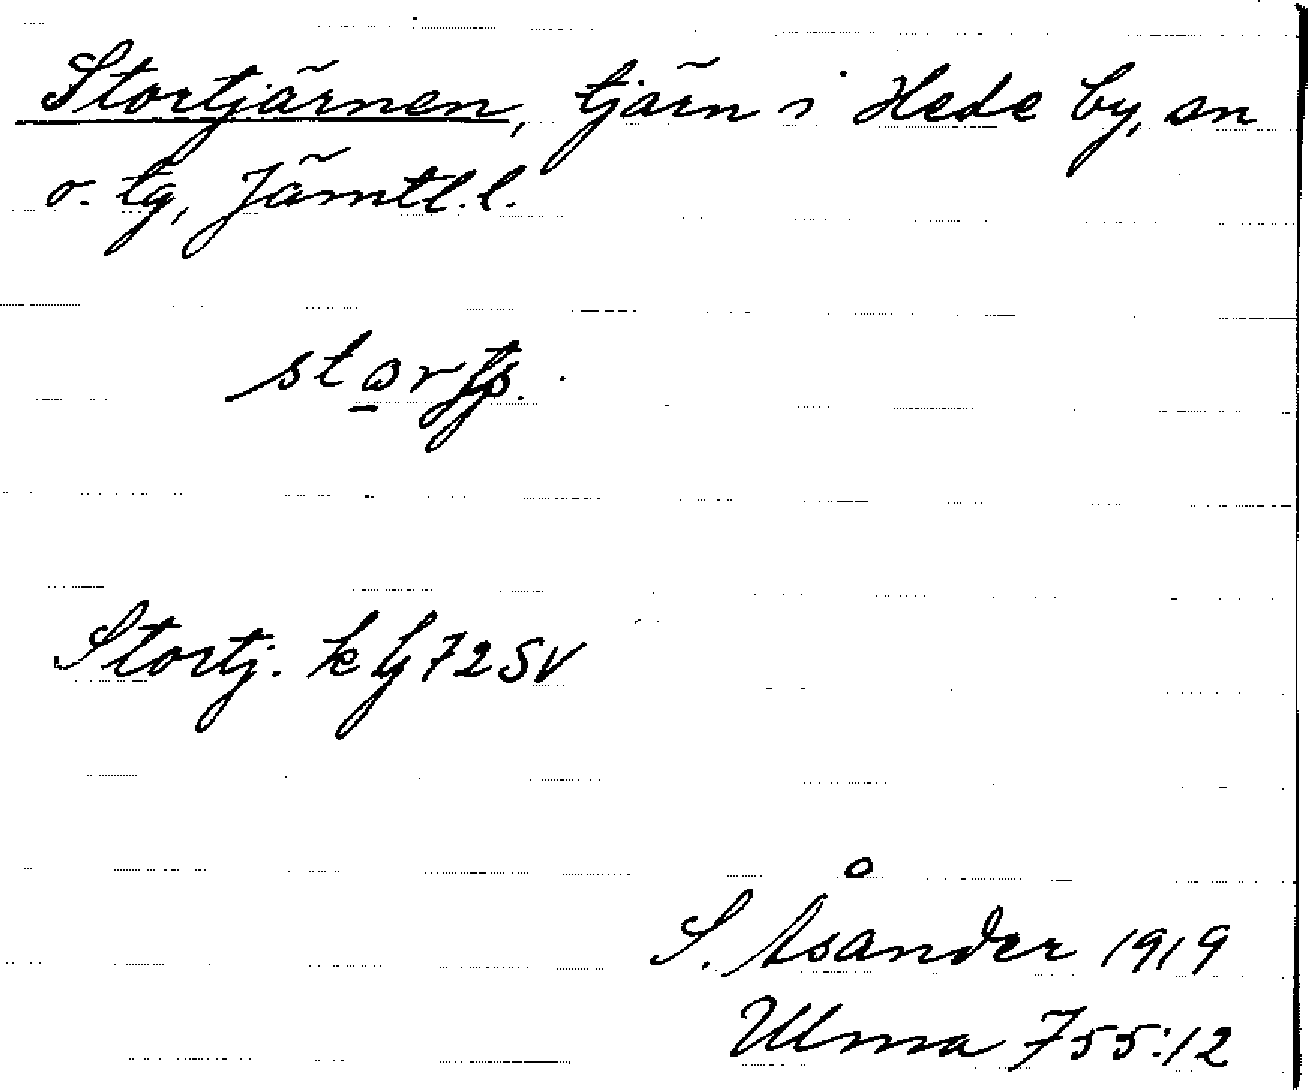 Stortjärnen, tjärn i Hede by, sn
o. tg, Jämtl. l.
Stortj. k bj 72 SV
S. Åsander 1919
Ulma 755:12